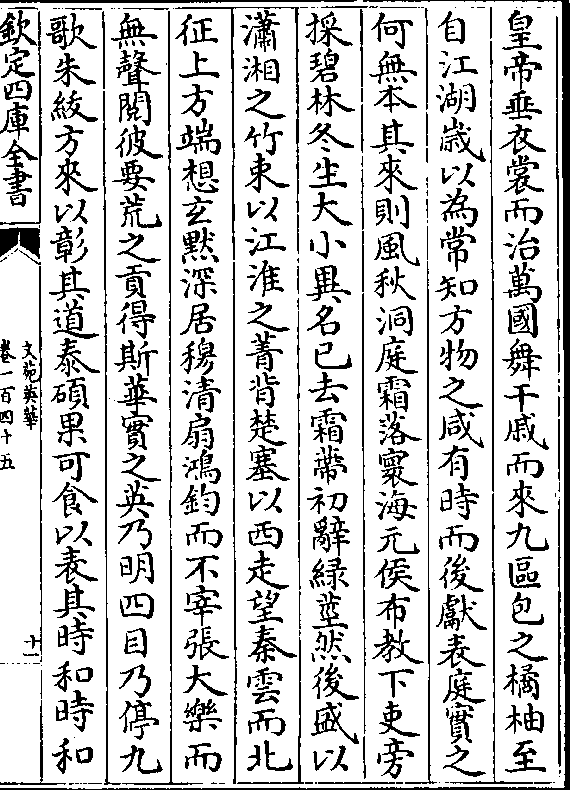 皇帝垂衣裳而治萬國舞干戚而來九區包之橘柚至
自江湖歲以為常知方物之咸有時而後獻表庭實之
何無本其來則風秋洞庭霜落寰海元侯布教下吏旁
採碧林冬生大小異名已去霜蒂初辭緑莖然後盛以
瀟湘之竹束以江淮之菁背楚塞以西走望秦雲而北
征上方端想玄默深居穆清扇鴻鈞而不宰張大樂而
無聲閱彼要荒之貢得斯華實之英乃明四目乃停九
歌朱紱方來以彰其道泰碩果可食以表其時和時和
欽定四庫全書
文苑英華
卷一百四十五
十一